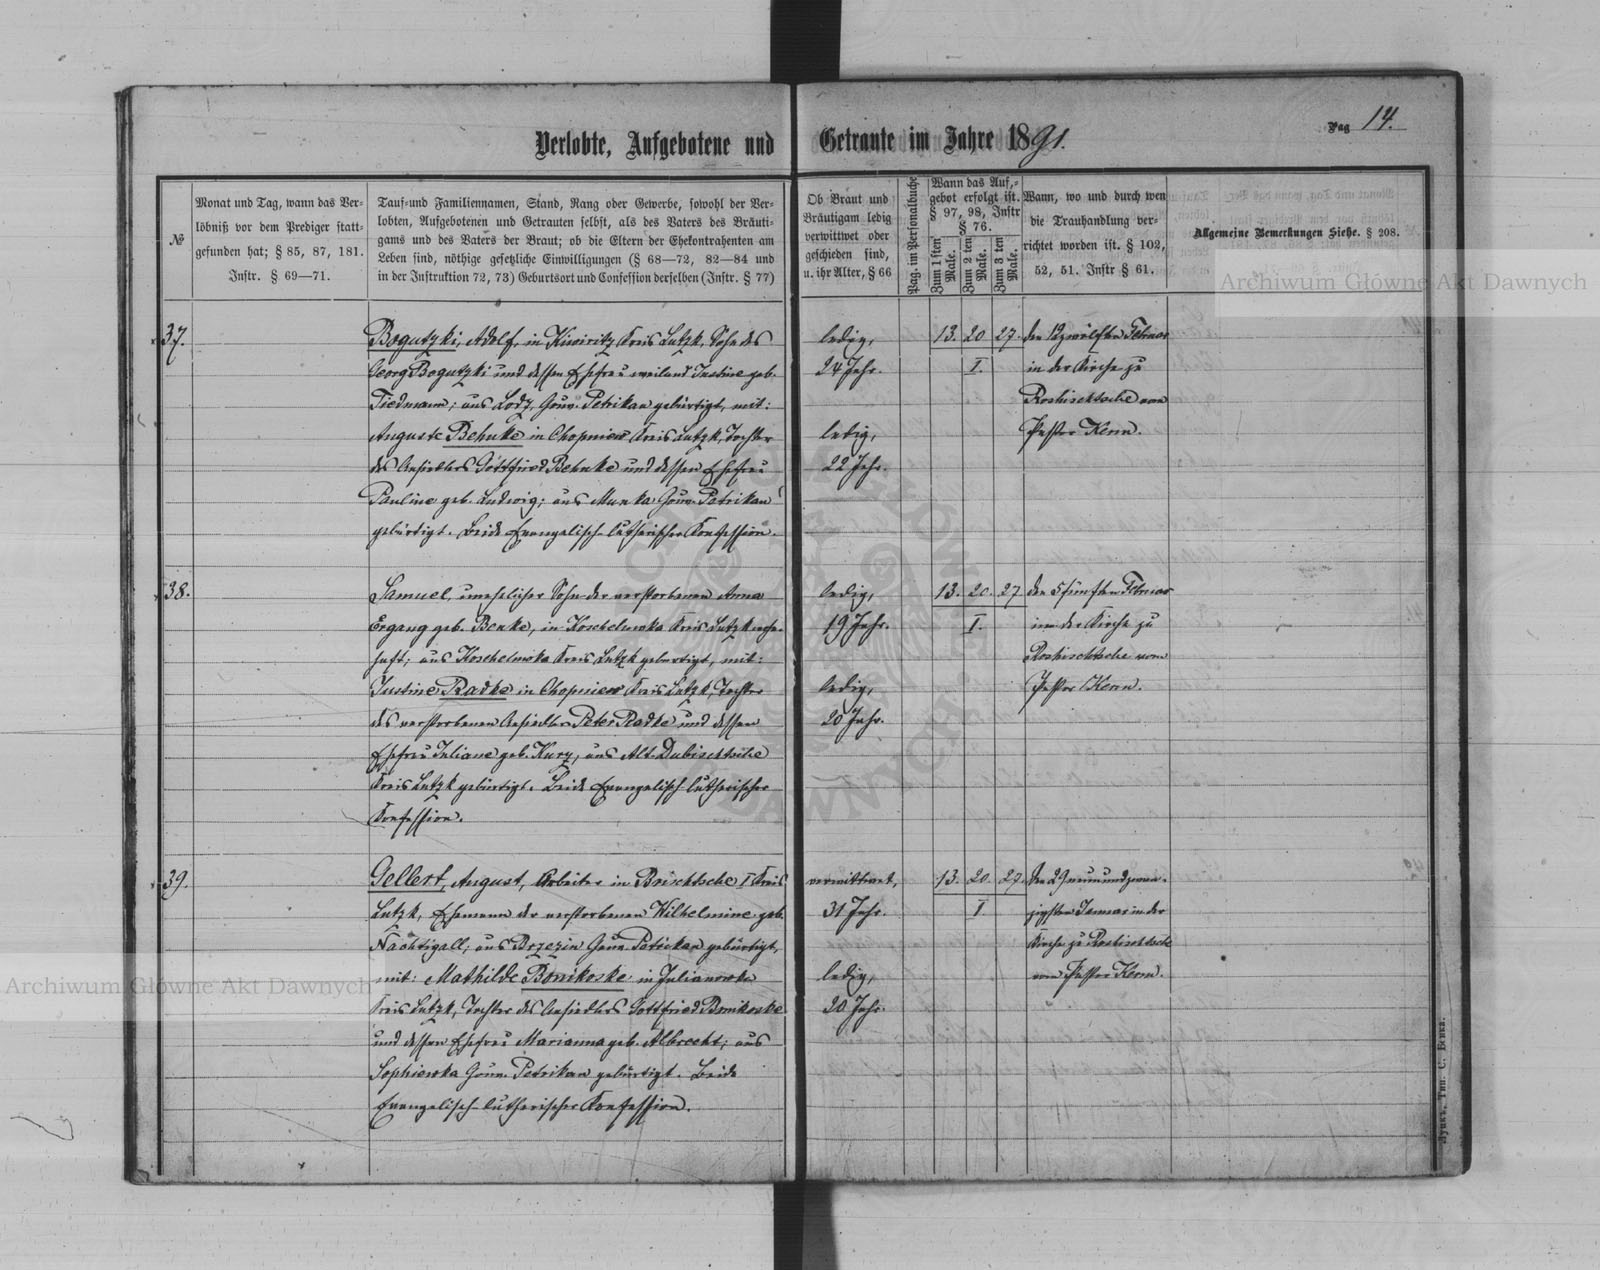 Verlobte, Aufgebotene und Getraute im Jahre 1891.
Pag 14.
№
Monat und Tag, wann das Ver-
löbniß vor dem Prediger statt-
gefunden hat; § 85, 87, 181.
Instr. § 69—71.
Tauf- und Familiennamen, Stand, Rang oder Gewerbe, sowohl der Ver-
lobten, Aufgebotenen und Getrauten selbst, als des Vaters des Bräuti-
gams und des Vaters der Braut; ob die Eltern der Ehekontrahenten am
Leben sind, nöthige gesetzliche Einwilligungen (§ 68—72, 82—84 und
in der Instruktion 72, 73) Geburtsort und Confession derselben (Instr. § 77)
Ob Braut und
Bräutigam ledig
verwittwet oder
geschieden sind,
u. ihr Alter, § 66
Pag. im Personalbuche
Wann das Auf-
gebot erfolgt ist.
§ 97, 98, Instr
§ 76.
Zum 1 ten Male.
Zum 2 ten Male.
Zum 3 ten Male.
Wann, wo und durch wen
die Trauhandlung ver-
richtet worden ist. § 102,
52, 51. Instr § 61.
Allgemeine Bemerkungen Siehe. § 208.
37.
Bogutzki, Adolf, in Kiwiritz Kreis Lutzk, Sohn des
Georg Bogutzki und dessen Ehefrau weiland Justine geb.
Tiedmann; aus Lodz, Gouv. Petrikau gebürtigt, mit:
Auguste Behnke in Chopniew Kreis Lutzk, Tochter
des Ansiedlers Gottfried Behnke und dessen Ehefrau
Pauline geb. Ludwig; aus Munka Gouv. Petrikau
gebürtigt. Beide Evangelisch-lutherischer Konfession.
ledig,
24 Jahr.
ledig,
22 Jahr.
13. 20 27.
I.
den 12 zwölften Februar
in der Kirche zu
Roshischtsche von
Pastor Kern.
38.
Samuel, unehelicher Sohn der verstorbenen Anna
Ergang geb. Benke, in Koschelewka Kreis Lutzk wohn-
haft; aus Koschelewka Kreis Lutzk gebürtigt, mit:
Justine Radke in Chopniew Kreis Lutzk, Tochter
des verstorbenen Ansiedlers Peter Radke und dessen
Ehefrau Juliane geb. Kurz, aus Alt-Dubischtsche
Kreis Lutzk gebürtigt. Beide Evangelisch-lutherischer
Konfession.
ledig,
19 Jahr.
ledig,
20 Jahr.
13. 20. 27
I.
den 5 fünften Februar
in der Kirche zu
Roshischtsche vom
Pastor Kern.
39.
Gellert, August, Arbeiter in Brischtsche I Kreis
Lutzk, Ehemann der verstorbenen Wilhelmine geb.
Nachtigall; aus Brzezin Gouv. Petrikau gebürtigt,
mit: Mathilde Bonikoske in Julianowka
Kreis Lutzk, Tochter des Ansiedlers Gottfried Bonikoske
und dessen Ehefrau Marianna geb. Albrecht; aus
Sophiewka Gouv. Petrikau gebürtigt. Beide
Evangelisch-lutherischer Konfession.
verwittwet,
31 Jahr.
ledig,
20 Jahr.
13. 20. 27.
I
den 29 neunundzwan-
zigsten Januar in der
Kirche zu Roshischtsche
von Pastor Kern.
Луцкъ. Тип. С. Бенка.
Archiwum Główne Akt Dawnych
Archiwum Główne Akt Dawnych